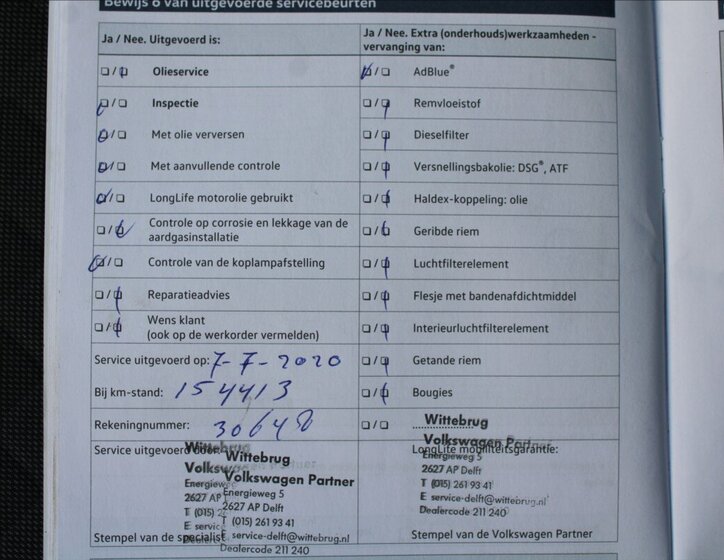 Bewijs 6 van uitgevoerde servicebeurten
Ja / Nee. Uitgevoerd is:
❏ / ❏ Olieservice
❏ / ❏ Inspectie
❏ / ❏ Met olie verversen
❏ / ❏ Met aanvullende controle
❏ / ❏ LongLife motorolie gebruikt
❏ / ❏ Controle op corrosie en lekkage van de
aardgasinstallatie
❏ / ❏ Controle van de koplampafstelling
❏ / ❏ Reparatieadvies
❏ / ❏ Wens klant
(ook op de werkorder vermelden)
Service uitgevoerd op: 7-7-2020
Bij km-stand: 154413
Rekeningnummer: 30648
Service uitgevoerd door:
Wittebrug
Volkswagen
Energieweg
2627 AP
T (015)
E service
Wittebrug
Volkswagen Partner
Energieweg 5
2627 AP Delft
T (015) 261 93 41
E service-delft@wittebrug.nl
Dealercode 211 240
Stempel van de specialist
Ja / Nee. Extra (onderhouds)werkzaamheden -
vervanging van:
❏ / ❏ AdBlue®
❏ / ❏ Remvloeistof
❏ / ❏ Dieselfilter
❏ / ❏ Versnellingsbakolie: DSG®, ATF
❏ / ❏ Haldex-koppeling: olie
❏ / ❏ Geribde riem
❏ / ❏ Luchtfilterelement
❏ / ❏ Flesje met bandenafdichtmiddel
❏ / ❏ Interieurluchtfilterelement
❏ / ❏ Getande riem
❏ / ❏ Bougies
❏ / ❏
Wittebrug
Volkswagen Partner
LongLife mobiliteitsgarantie:
Energieweg 5
2627 AP Delft
T (015) 261 93 41
E service-delft@wittebrug.nl
Dealercode 211 240
Stempel van de Volkswagen Partner